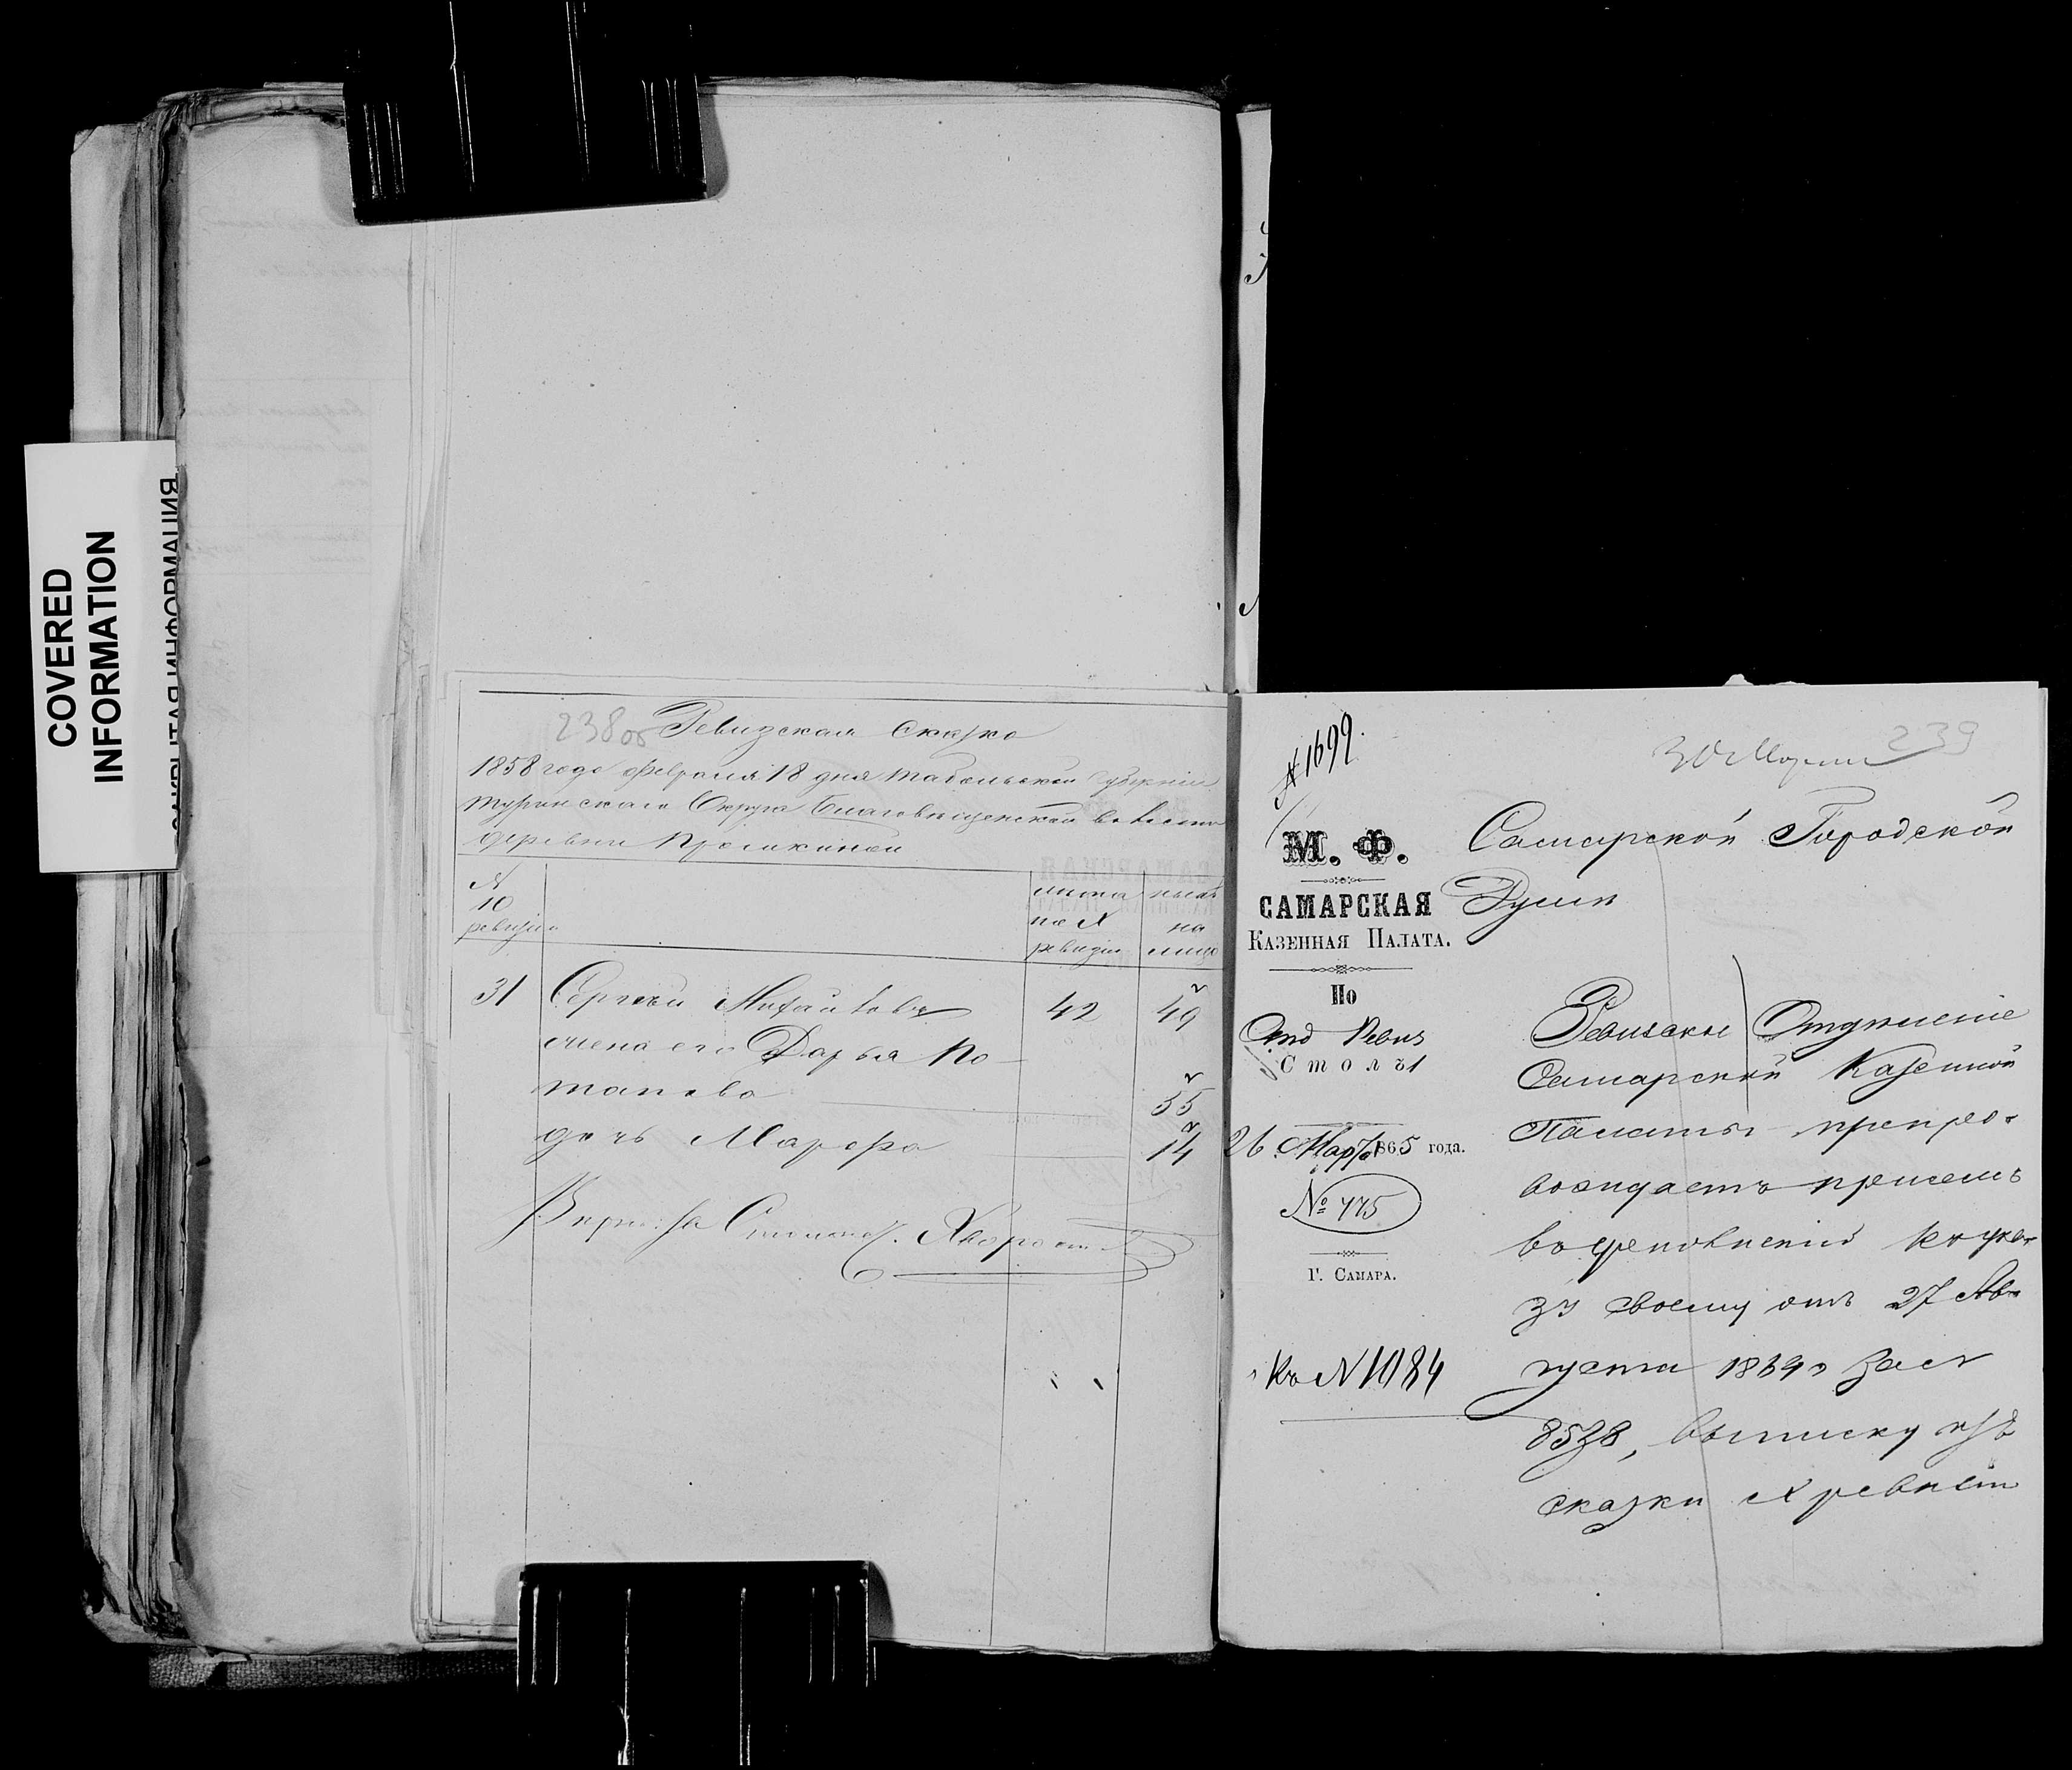 COVERED
INFORMATION
238об
Ревизская сказка
1858 года февраля 18 дня Тобольской губернии
Туринскаго Округа Благовещенской волости
деревни
№
10
ревизіи
лета
по X
ревизіи
ныне
на
лицо
31 Сергей Михайловъ 42 49
жена его Дарья По-
тапова 55
дочь Марфа 14
Верно: За Столонач.
№ 1699.
30 Марта
239
М. Ф.
САМАРСКАЯ
КАЗЕННАЯ ПАЛАТА.
По
Отд Ревиз
Столъ 1
26 Марта 1865 года.
№ 775
Г. САМАРА.
Къ № 1084
Самарской Городской
Думе
Ревизское Отделеніе
Самарской Казенной
Палаты препро-
вождаетъ при семъ
къ ука-
зу своему отъ 27 Ав-
густа 1864 за №
8538, выписку изъ
сказки X ревизіи